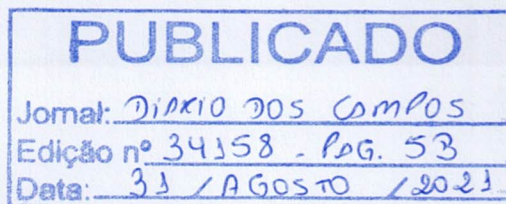 PUBLICADO
Jornal: DIÁRIO DOS CAMPOS
Edição nº 34158 - PÁG. 5B
Data: 31 / AGOSTO / 2021